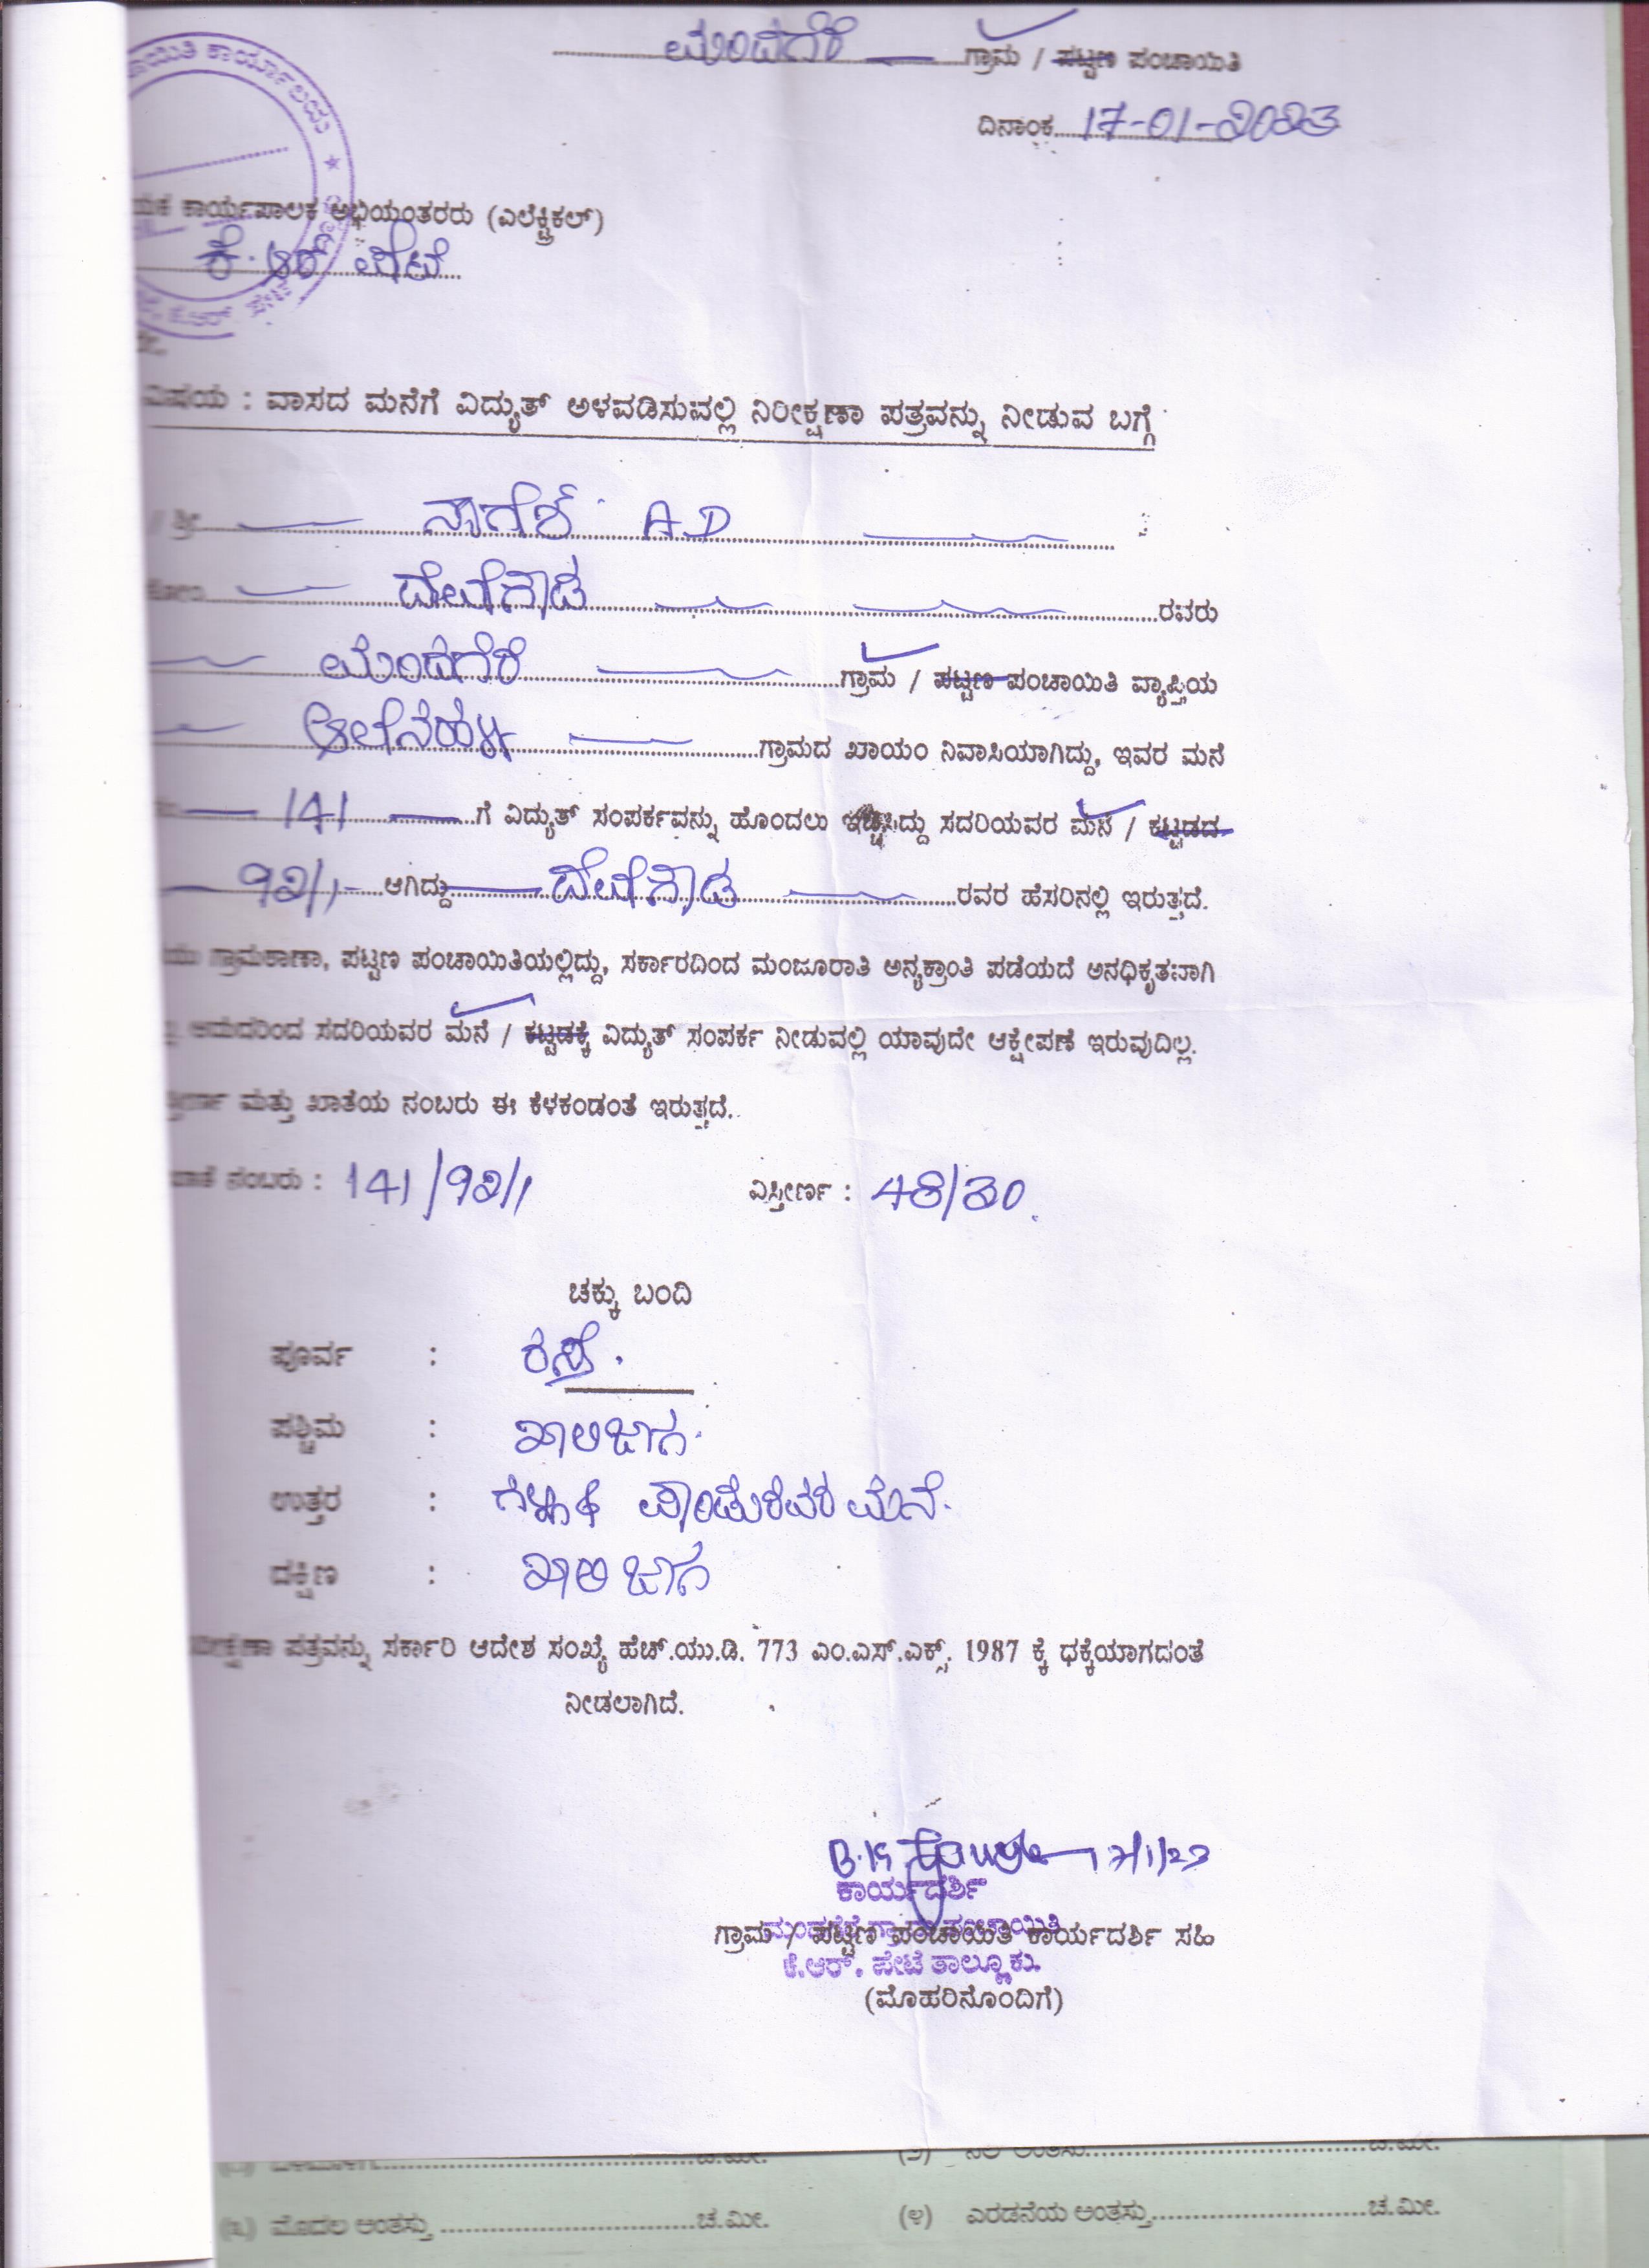 ಮಂದಗೆರೆ ಗ್ರಾಮ / ಪಟ್ಟಣ ಪಂಚಾಯಿತಿ
ದಿನಾಂಕ 17-01-2023
ಕಾರ್ಯಾಲಯ
ಕಾರ್ಯಪಾಲಕ ಅಭಿಯಂತರರು (ಎಲೆಕ್ಟ್ರಿಕಲ್)
ಕೆ.ಆರ್ ಪೇಟೆ
ವಿಷಯ : ವಾಸದ ಮನೆಗೆ ವಿದ್ಯುತ್ ಅಳವಡಿಸುವಲ್ಲಿ ನಿರೀಕ್ಷಣಾ ಪತ್ರವನ್ನು ನೀಡುವ ಬಗ್ಗೆ
/ ಶ್ರೀ ನಾಗೇಶ್ A.D
ದೇವೇಗೌಡ ರವರು
ಮಂದಗೆರೆ ಗ್ರಾಮ / ಪಟ್ಟಣ ಪಂಚಾಯಿತಿ ವ್ಯಾಪ್ತಿಯ
ಆಲೇನಹಳ್ಳಿ ಗ್ರಾಮದ ಖಾಯಂ ನಿವಾಸಿಯಾಗಿದ್ದು, ಇವರ ಮನೆ
141 ಗೆ ವಿದ್ಯುತ್ ಸಂಪರ್ಕವನ್ನು ಹೊಂದಲು ಇಚ್ಛಿಸಿದ್ದು ಸದರಿಯವರ ಮನೆ / ಕಟ್ಟಡದ
92/1 ಆಗಿದ್ದು ದೇವೇಗೌಡ ರವರ ಹೆಸರಿನಲ್ಲಿ ಇರುತ್ತದೆ.
ಯು ಗ್ರಾಮಠಾಣಾ, ಪಟ್ಟಣ ಪಂಚಾಯಿತಿಯಲ್ಲಿದ್ದು, ಸರ್ಕಾರದಿಂದ ಮಂಜೂರಾತಿ ಅನ್ಯಕ್ರಾಂತಿ ಪಡೆಯದೆ ಅನಧಿಕೃತವಾಗಿ
ಆದುದರಿಂದ ಸದರಿಯವರ ಮನೆ / ಕಟ್ಟಡಕ್ಕೆ ವಿದ್ಯುತ್ ಸಂಪರ್ಕ ನೀಡುವಲ್ಲಿ ಯಾವುದೇ ಆಕ್ಷೇಪಣೆ ಇರುವುದಿಲ್ಲ.
ಮತ್ತು ಖಾತೆಯ ನಂಬರು ಈ ಕೆಳಕಂಡಂತೆ ಇರುತ್ತದೆ.
ಖಾತೆ ನಂಬರು : 141/92/1 ವಿಸ್ತೀರ್ಣ : 48/30
ಚಕ್ಕು ಬಂದಿ
ಪೂರ್ವ : ರಸ್ತೆ.
ಪಶ್ಚಿಮ : ಖಾಲಿಜಾಗ.
ಉತ್ತರ : ಪಾಂಡುರವರ ಮನೆ.
ದಕ್ಷಿಣ : ಖಾಲಿ ಜಾಗ
ಪತ್ರವನ್ನು ಸರ್ಕಾರಿ ಆದೇಶ ಸಂಖ್ಯೆ ಹೆಚ್.ಯು.ಡಿ. 773 ಎಂ.ಎಸ್.ಎಕ್ಸ್. 1987 ಕ್ಕೆ ಧಕ್ಕೆಯಾಗದಂತೆ
ನೀಡಲಾಗಿದೆ.
17/1/23
ಕಾರ್ಯದರ್ಶಿ
ಮಂದಗೆರೆ ಗ್ರಾಮ ಪಂಚಾಯಿತಿ
ಗ್ರಾಮ / ಪಟ್ಟಣ ಪಂಚಾಯಿತಿ ಕಾರ್ಯದರ್ಶಿ ಸಹಿ
ಕೆ.ಆರ್. ಪೇಟೆ ತಾಲ್ಲೂಕು.
(ಮೊಹರಿನೊಂದಿಗೆ)
ಮೊದಲ ಅಂತಸ್ತು ಚ.ಮೀ. (೪) ಎರಡನೆಯ ಅಂತಸ್ತು ಚ.ಮೀ.